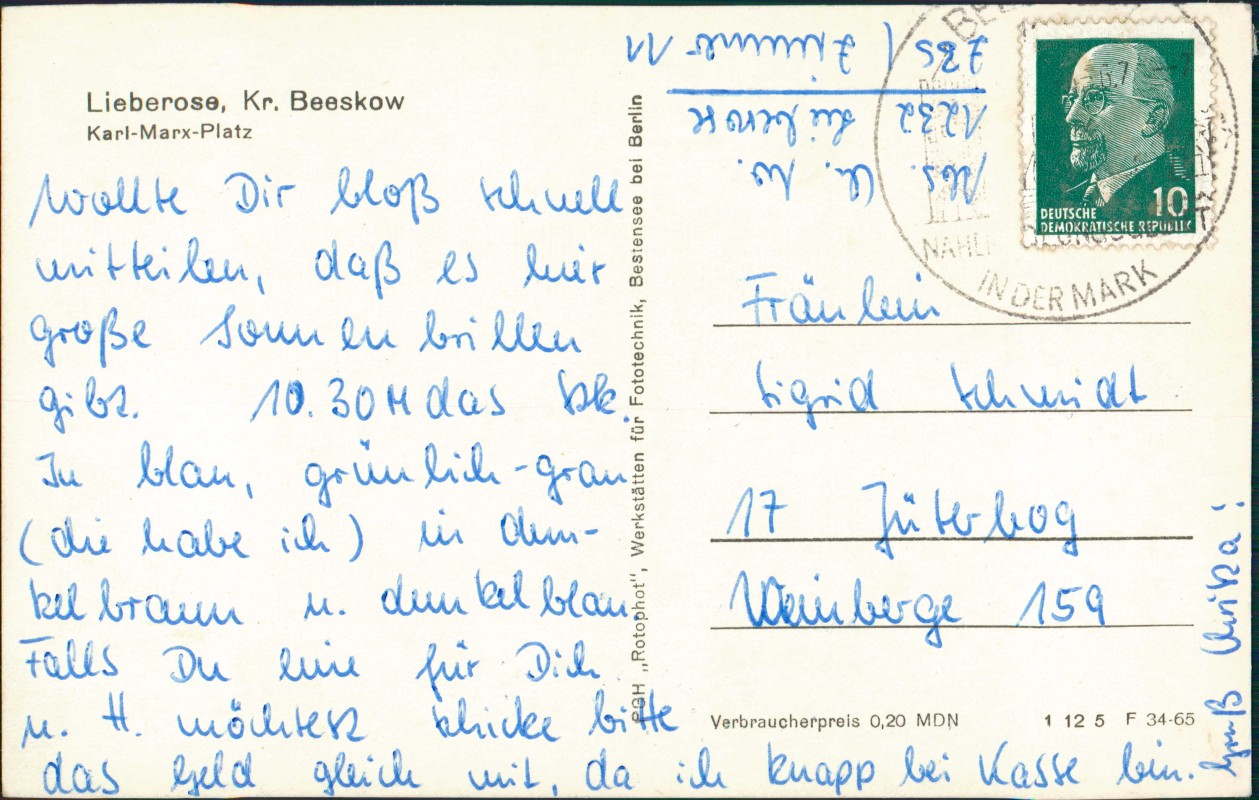 Lieberose, Kr. Beeskow
Karl-Marx-Platz
Wollte Dir bloß schnell
mitteilen, daß es hier
große Sonnenbrillen
gibt. 10.30 M das Stk.
In blau, grünlich-grau
(die habe ich) in dun-
kelbraun u. dunkelblau.
Falls Du eine für Dich
u. H. möchtest schicke bitte
das Geld gleich mit, da ich knapp bei Kasse bin.
Gruß Ulrika!
PGH „Rotophot", Werkstätten für Fototechnik, Bestensee bei Berlin
Abs. U. W.
1232 Lieberose
ZBS / Zimmer 11
10
DEUTSCHE
DEMOKRATISCHE REPUBLIK
IN DER MARK
Fräulein
Sigrid Schmidt
17 Jüterbog
Weinberge 159
Verbraucherpreis 0,20 MDN 1 12 5 F 34-65